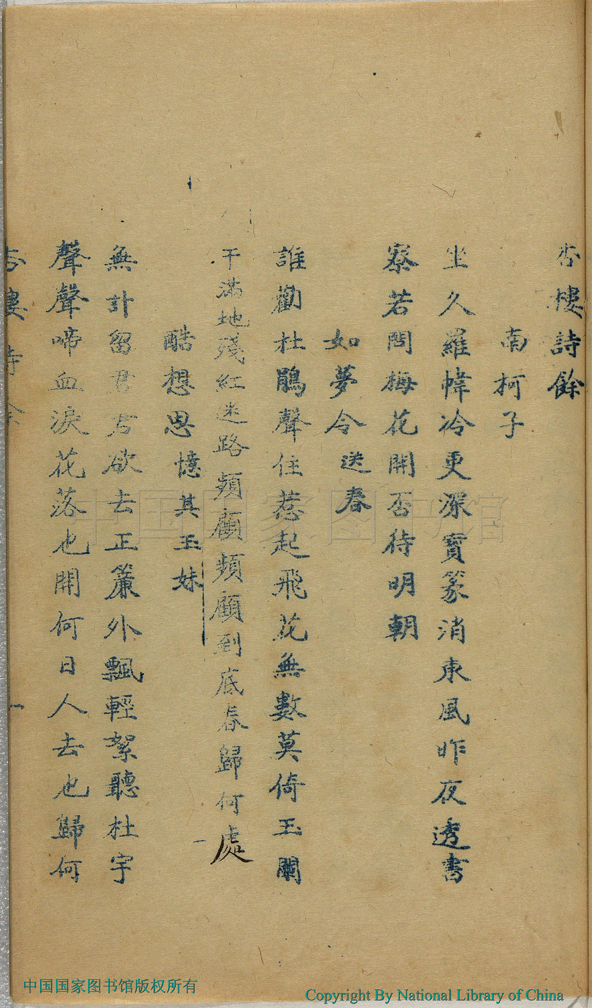 杏樓詩餘
南柯子
坐久羅幃冷更深寶篆消東風昨夜透書
寮若問梅花開否待明朝
如夢令送春
誰勸杜鵑聲住惹起飛花無數莫倚玉闌
干滿地殘紅迷路頻顧頻顧到底春歸何處
酷想思憶其玉妹
無計留君君欲去正簾外飄輕絮聽杜宇
聲聲啼血淚花落也開何日人去也歸何
杏樓詩餘 一
中国国家图书馆
中国国家图书馆版权所有
Copyright By National Library of China